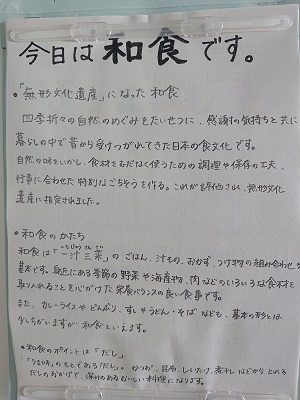 今日は和食です。
・「無形文化遺産」になった和食
四季折々の自然のめぐみをたいせつに、感謝の気持ちと共に
暮らしの中で昔から受けつがれてきた日本の食文化です。
自然の味をいかし、食材をむだなく使うための調理や保存の工夫、
行事に合わせた特別なごちそうを作る。これが評価され、無形文化
遺産に指定されました。
・和食のかたち
いちじゅうさんさい
和食は「一汁三菜」の ごはん、汁もの、おかず、つけ物の組み合わせが
基本です。身近にある季節の野菜や海産物、肉などのいろいろな食材を
取り入れることを心がけた栄養バランスの良い食事です。
また、カレーライスや どんぶり、すしやうどん・そばなども、基本の形とは
少しちがいますが 和食といえます。
・和食のポイントは「だし」
「うま味」のもとである「だし」。かつお、昆布、しいたけ、煮干しなどからとれる
だしのおかげで、深みのあるおいしい料理になります。